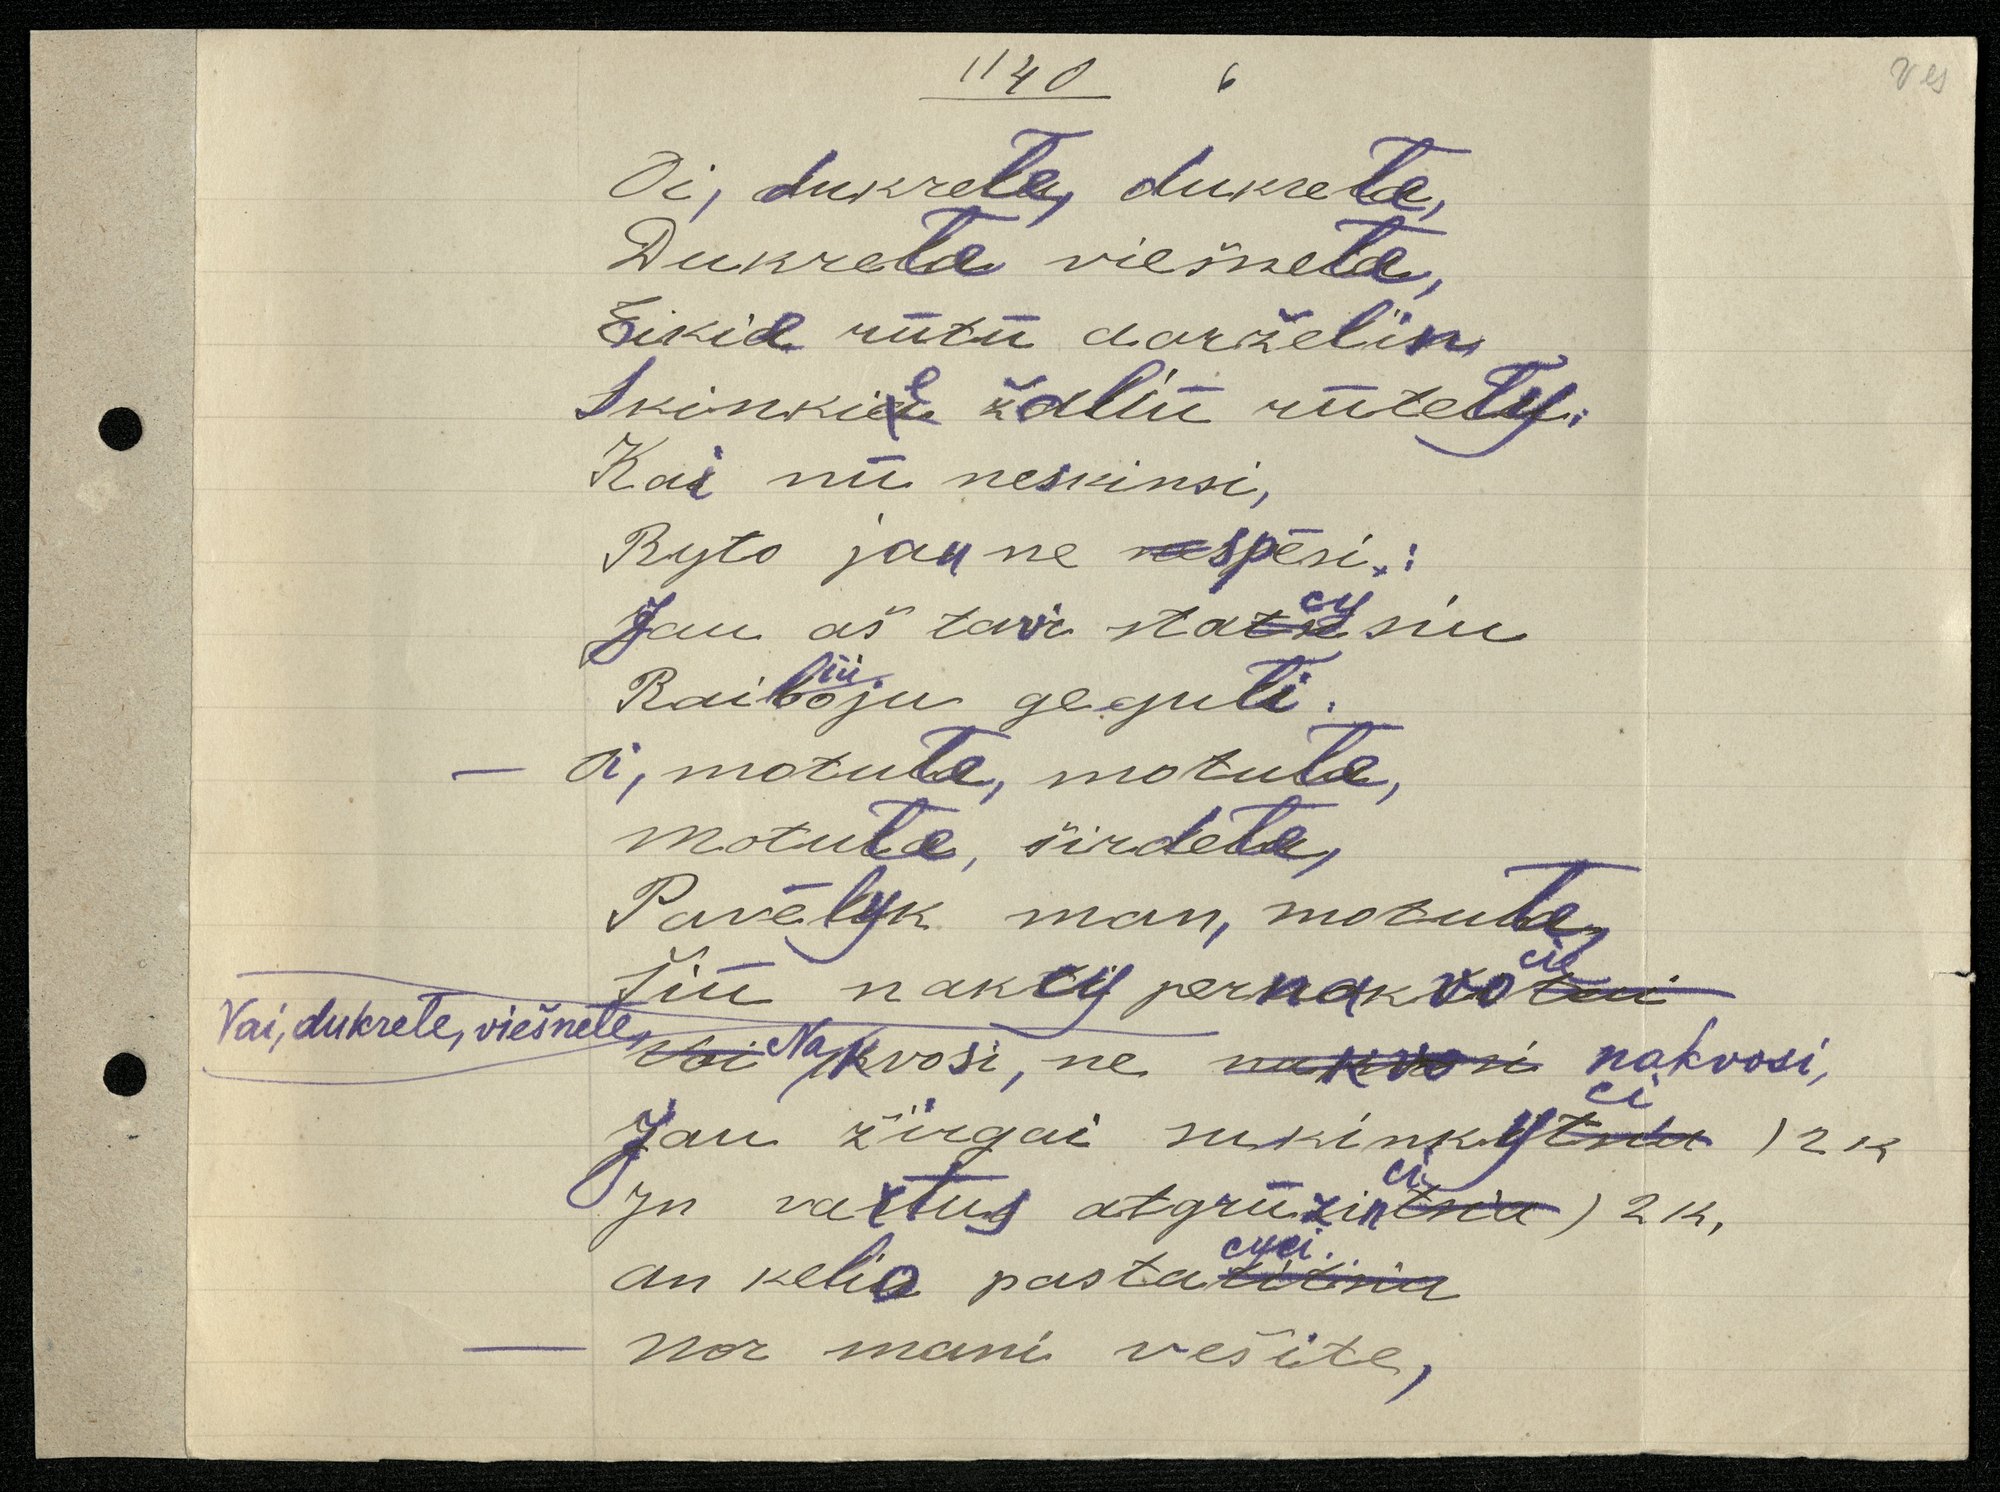 1140 6
ves
Oi, dukrete, dukrete,
Dukrete viešnete,
Eikie rūtū darželin,
Skinkie žaliū rūtely:
Kai nū neskinsi,
Ryto jau ne nespėsi:
Jau aš tavi statysiu cy
Raiboju iū geguti.
— Oi, motute, motute,
Motute, širdete,
Pavėlyk man, motute,
Šiū nakcy pernakvotui cie
Vai, dukrete, viešnete,
Vai Nakvosi, ne nakvosi nakvosi,
Jau žirgai sukinkytniu ci ) 2 k
In vartus atgrūzintniu ci ) 2 k,
an kelio pastatitiniu cyci.
— Nor mani vešite,